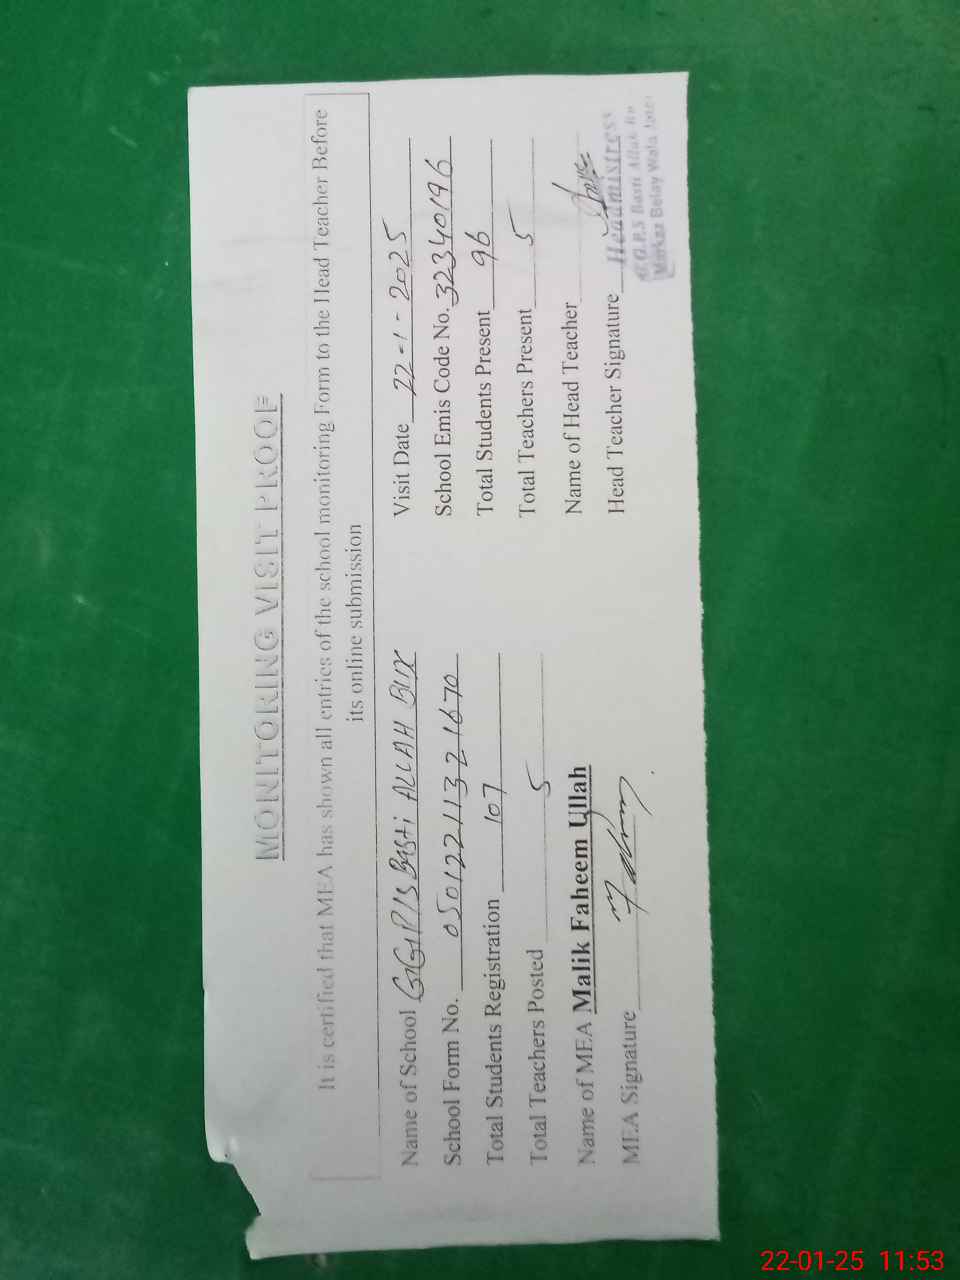 MONITORING VISIT PROOF
It is certified that MEA has shown all entries of the school monitoring Form to the Head Teacher Before
its online submission
Name of School GGP/S Basti ALLAH BUX Visit Date 22-1-2025
School Form No. 05012211321670 School Emis Code No. 32340196
Total Students Registration 107 Total Students Present 96
Total Teachers Posted 5 Total Teachers Present 5
Name of MEA Malik Faheem Ullah Name of Head Teacher
MEA Signature Head Teacher Signature
Headmistress
G.P.S Basti Allah
Markaz Belay Wala
22-01-25 11:53